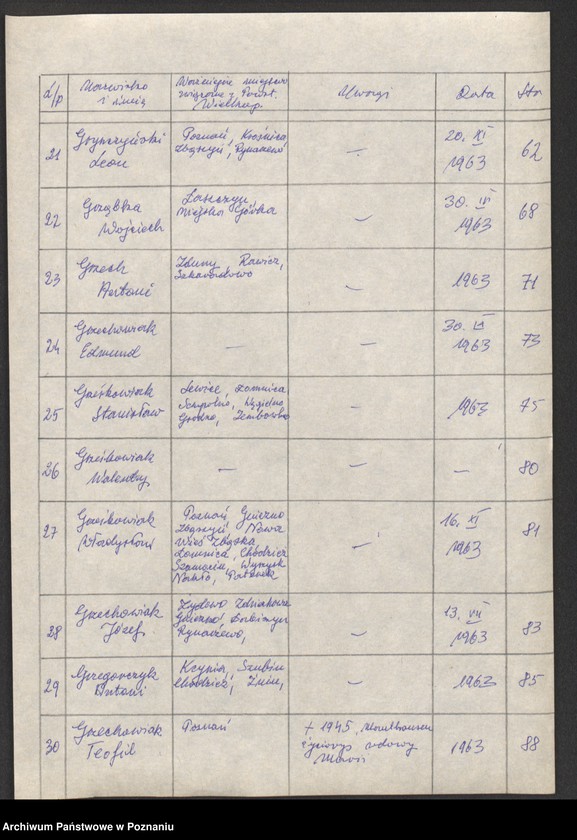 L/p Nazwisko i imię Ważniejsze miejscow. związane z Powst. Wielkop. Uwagi Data Str.
21 Gryszczyński Leon Poznań, Krośnica Zbąszyń, Rynarzewo — 20. XI 1963 62
22 Grząbka Wojciech Miejska Górka — 30. IV 1963 68
23 Grzech Antoni Zduny, Rawicz, — 1963 71
24 Grzechowiak Edmund — — 30. 1963 73
25 Grześkowiak Stanisław Lewice, Łomnica — 1963 75
26 Grześkowiak Walenty — — — 80
27 Grześkowiak Władysław Poznań, Gniezno
Zbąszyń Nowa
Wieś Zbąska
Łomnica, Chodzież
Szamocin, Wyrzysk
Nakło, — 16. XI 1963 81
28 Grzechowiak Józef Żydowo
Gniezno,
Rynarzewo, — 13. VII 1963 83
29 Grzegorczyk Antoni Kcynia, Szubin
Chodzież, Żnin, — 1963 85
30 Grzechowiak Teofil Poznań + 1945 Mauthausen
życiorys wdowy
Marii 1963 88
Archiwum Państwowe w Poznaniu